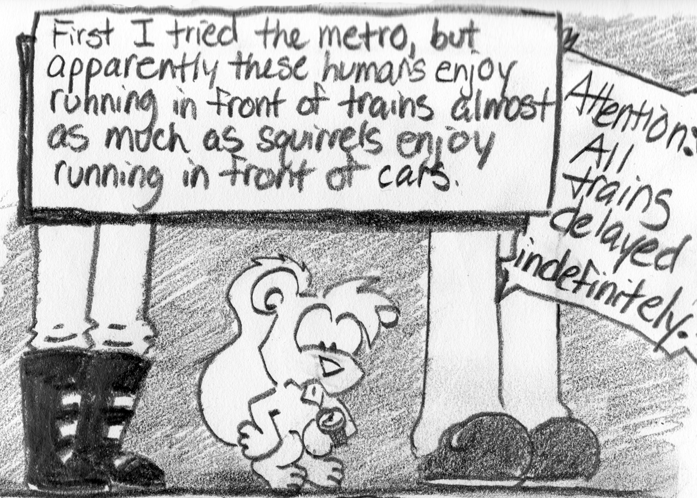 First I tried the metro, but
apparently these humans enjoy
running in front of trains almost
as much as squirrels enjoy
running in front of cars.
Attention:
All
trains
delayed
indefinitely.